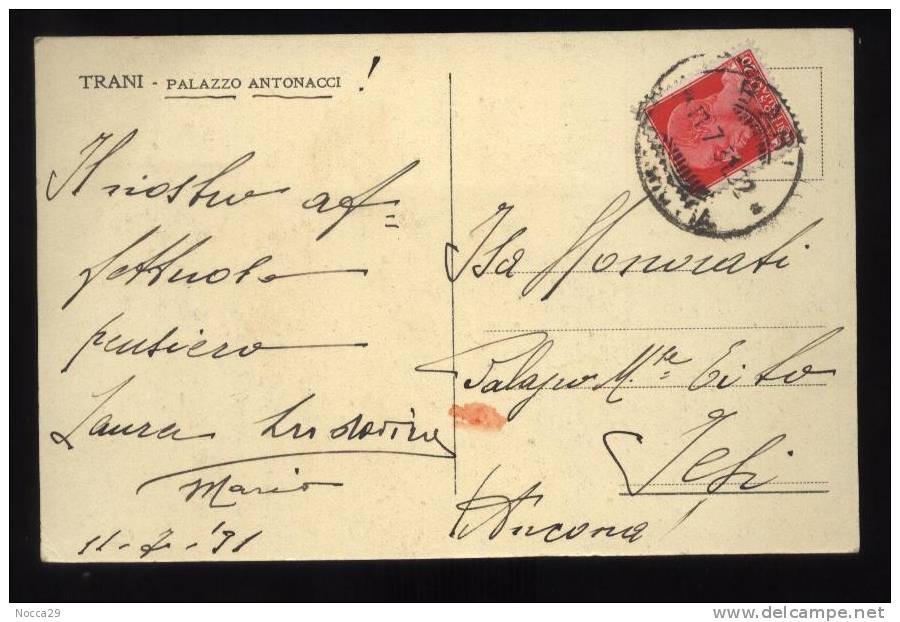 TRANI - PALAZZO ANTONACCI !
Il nostro af=
fettuoso
pensiero
Laura Ludovica
Mario
11-7-'31
Isa Honorati
Palazzo M.se
Jesi
Ancona
BARI
11.7.31.22
Nocca29
delcampe.net